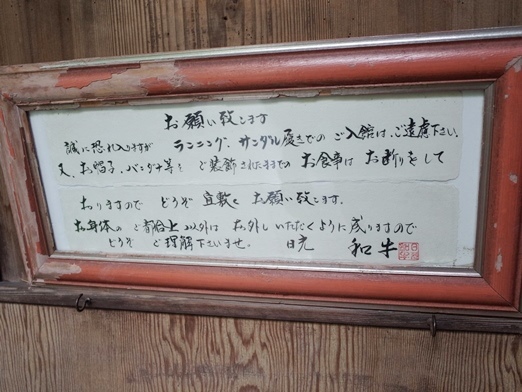 お願い致します
誠に恐れ入りますが ランニング、サンダル履きでの ご入館は、ご遠慮下さい。
又、お帽子、バンダナ等を ご装飾されたままでの お食事は お断りをして
おりますので どうぞ 宜敷く お願い致します。
お身体の ご都合上 以外は お外しいただくように成りますので
どうぞ ご理解下さいませ。 日光 和牛